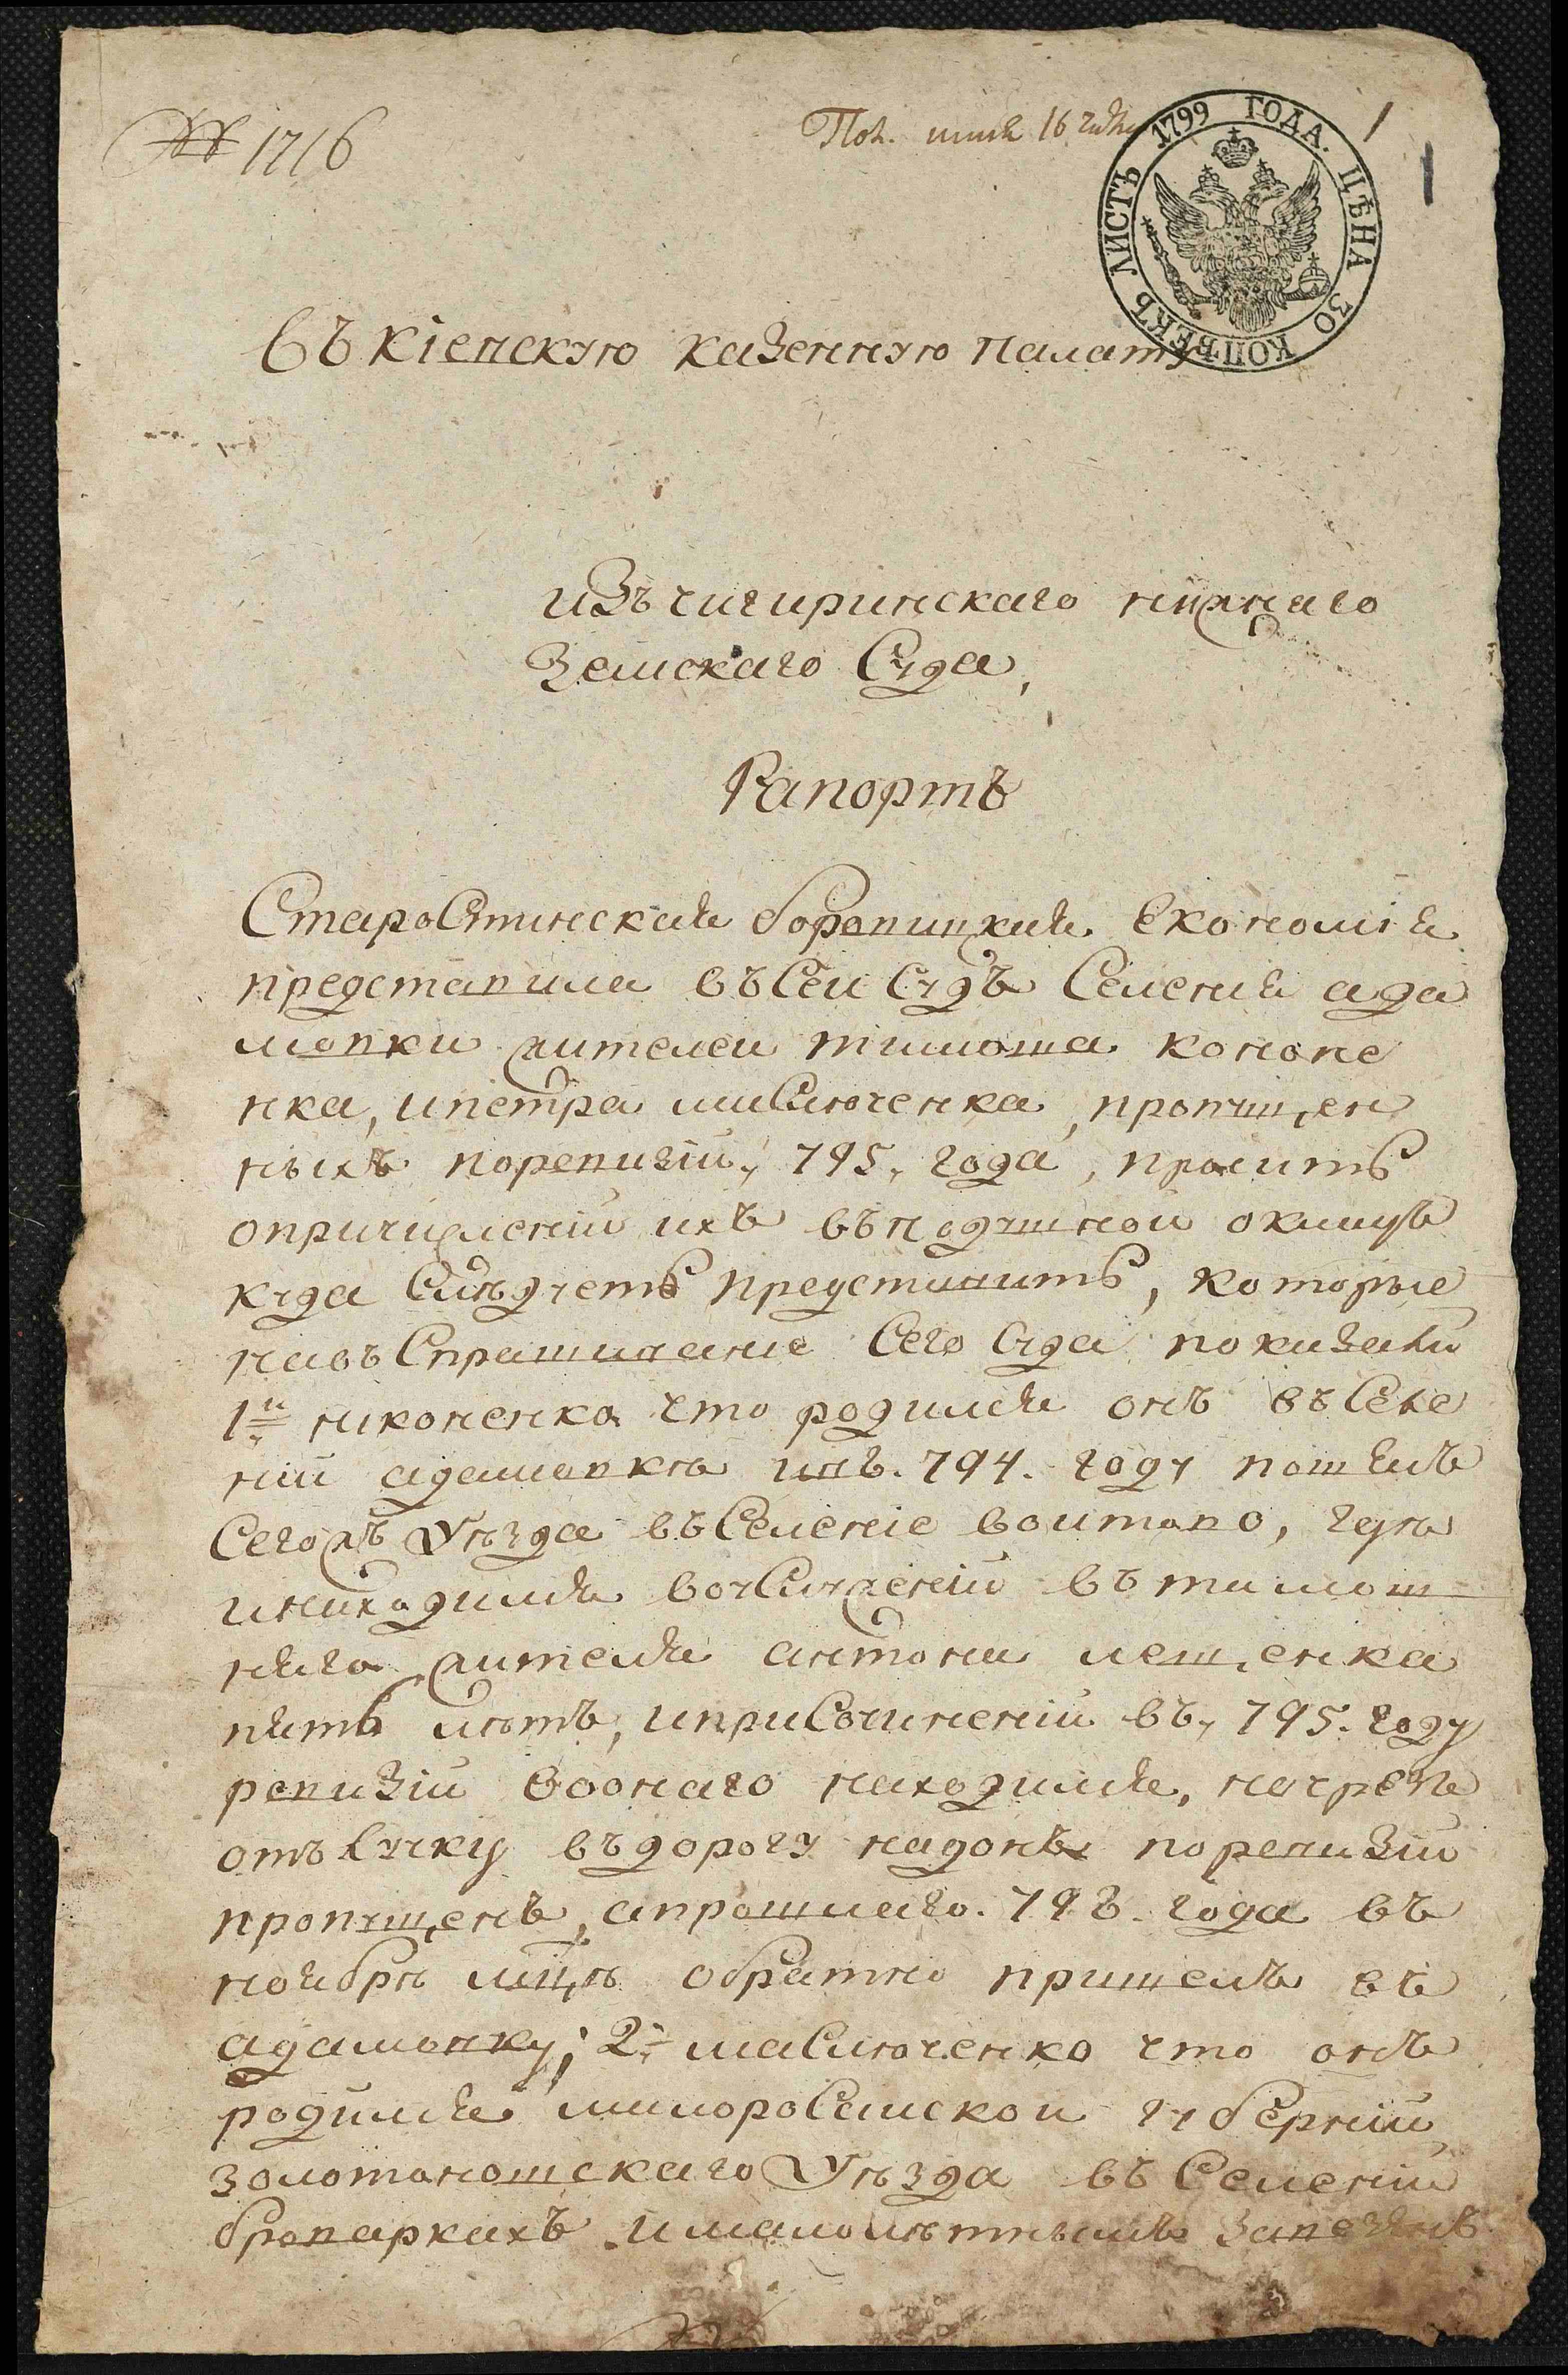 № 1716
Пол. июля 16 1799
1
1
ЛИСТЪ 1799 ГОДА. ЦѢНА 30 КОПѢЕКЪ
Въ кіевскую казенную палату
изъ чигиринскаго нижнаго
Земскаго Суда,
Рапортъ
Старостинская боровицкая економія
представила въ Сеи Судъ Селенія ада
мовки жителеи тимоша кононе
нка, и петра маслюченка, пропущен
ныхъ поревизіи, 795, года, проситъ
опричисленіи ихъ въ подушнои окладъ
куда Слѣдуетъ представить, которые
навъ Спрашиваніе Сего Суда показали
1й никоненко что родился онъ въ Селе
ніи адамовкѣ ивъ. 794. году пошелъ
Сегожъ Уѣзда въ Селеніе воитово, гдѣ
инаходился вочслуженіи въ тимош
няго жителя антона лещенка
пять лѣтъ, и при Сочиненіи въ, 795. году
ревизіи воонаго находился, но чрезъ
отълучку въ дорогу на донъ поревизіи
пропущенъ, а прошлаго. 798. года въ
ноябрѣ мцѣ обратно пришелъ въ
адамовку; 2й маслюченко что онъ
родился малоросіискои губерніи
золотоношскаго Уѣзда въ Селеніи
броваркахъ и малолѣтнымъ завезенъ